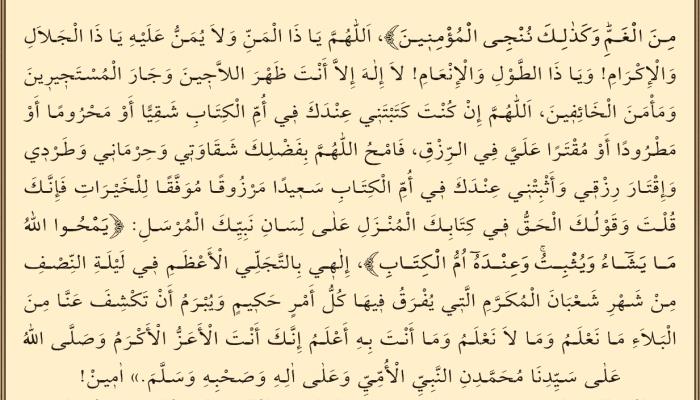 مِنَ الْغَمِّ وَكَذٰلِكَ نُنْجِى الْمُؤْمِنِينَ﴾، اَللّٰهُمَّ يَا ذَا الْمَنِّ وَلاَ يُمَنُّ عَلَيْهِ يَا ذَا الْجَلاَلِ
وَالْإِكْرَامِ! وَيَا ذَا الطَّوْلِ وَالْإِنْعَامِ! لاَ إِلٰهَ إِلاَّ أَنْتَ ظَهْرَ اللاَّجِينَ وَجَارَ الْمُسْتَجِيرِينَ
وَمَأْمَنَ الْخَائِفِينَ، اَللّٰهُمَّ إِنْ كُنْتَ كَتَبْتَنِي عِنْدَكَ فِي أُمِّ الْكِتَابِ شَقِيًّا أَوْ مَحْرُومًا أَوْ
مَطْرُودًا أَوْ مُقْتَرًا عَلَيَّ فِي الرِّزْقِ، فَامْحُ اللّٰهُمَّ بِفَضْلِكَ شَقَاوَتِي وَحِرْمَانِي وَطَرْدِي
وَإِقْتَارَ رِزْقِي وَأَثْبِتْنِي عِنْدَكَ فِي أُمِّ الْكِتَابِ سَعِيدًا مَرْزُوقًا مُوَفَّقًا لِلْخَيْرَاتِ فَإِنَّكَ
قُلْتَ وَقَوْلُكَ الْحَقُّ فِي كِتَابِكَ الْمُنْزَلِ عَلٰى لِسَانِ نَبِيِّكَ الْمُرْسَلِ: ﴿يَمْحُوا اللهُ
مَا يَشَٓاءُ وَيُثْبِتُۚ وَعِنْدَهُٓ اُمُّ الْكِتَابِ﴾، إِلٰهِي بِالتَّجَلِّي الْأَعْظَمِ فِي لَيْلَةِ النِّصْفِ
مِنْ شَهْرِ شَعْبَانَ الْمُكَرَّمِ الَّتِي يُفْرَقُ فِيهَا كُلُّ أَمْرٍ حَكِيمٍ وَيُبْرَمُ أَنْ تَكْشِفَ عَنَّا مِنَ
الْبَلاَءِ مَا نَعْلَمُ وَمَا لاَ نَعْلَمُ وَمَا أَنْتَ بِهِ أَعْلَمُ إِنَّكَ أَنْتَ الْأَعَزُّ الْأَكْرَمُ وَصَلَّى اللهُ
عَلٰى سَيِّدِنَا مُحَمَّدِنِ النَّبِيِّ الْأُمِّيِّ وَعَلٰى اٰلِهِ وَصَحْبِهِ وَسَلَّمَ.» اٰمِينْ!